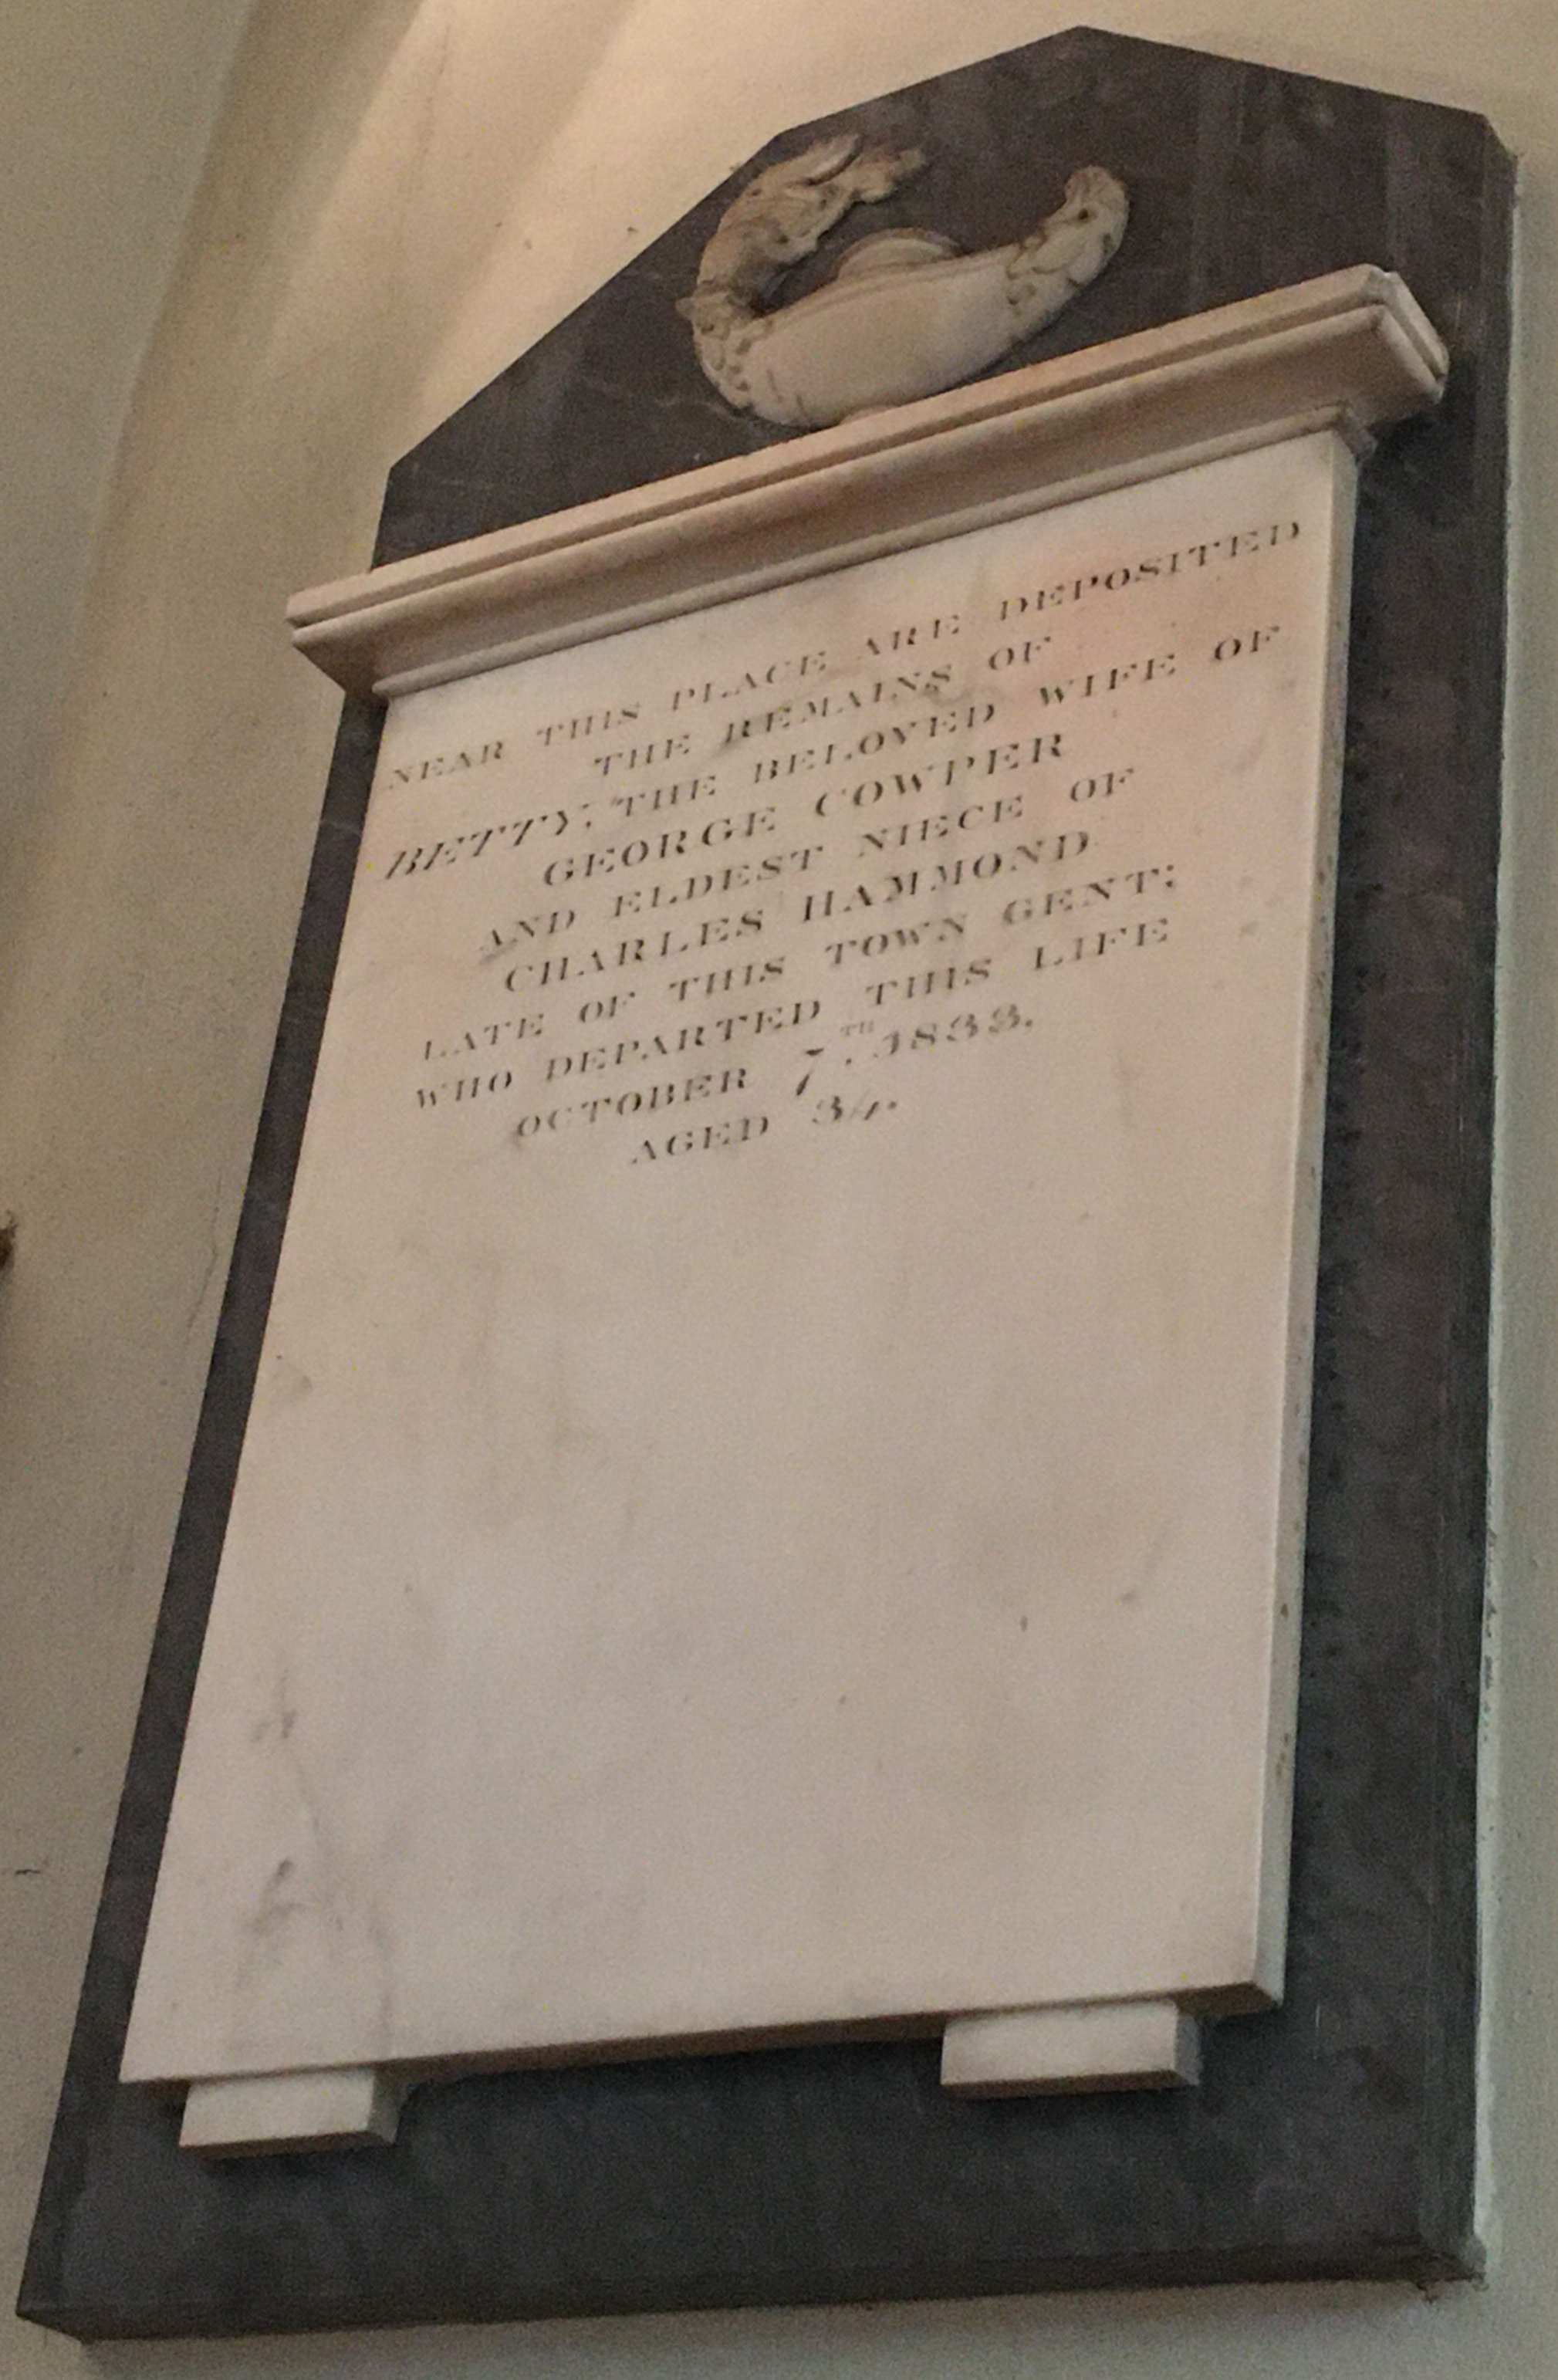 NEAR THIS PLACE ARE DEPOSITED
THE REMAINS OF
BETTY, THE BELOVED WIFE OF
GEORGE COWPER
AND ELDEST NIECE OF
CHARLES HAMMOND
LATE OF THIS TOWN GENT:
WHO DEPARTED THIS LIFE
OCTOBER 7TH. 1833.
AGED 34.